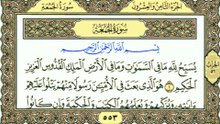 الجزء الثامن والعشرون سورة الجمعة
سورة الجمعة
بسم الله الرحمن الرحيم
يسبح لله ما في السموات وما في الأرض الملك القدوس العزيز
الحكيم ١ هو الذي بعث في الأميين رسولا منهم يتلوا عليهم
ءايته ويزكيهم ويعلمهم الكتب والحكمة وإن كانوا
٥٥٣